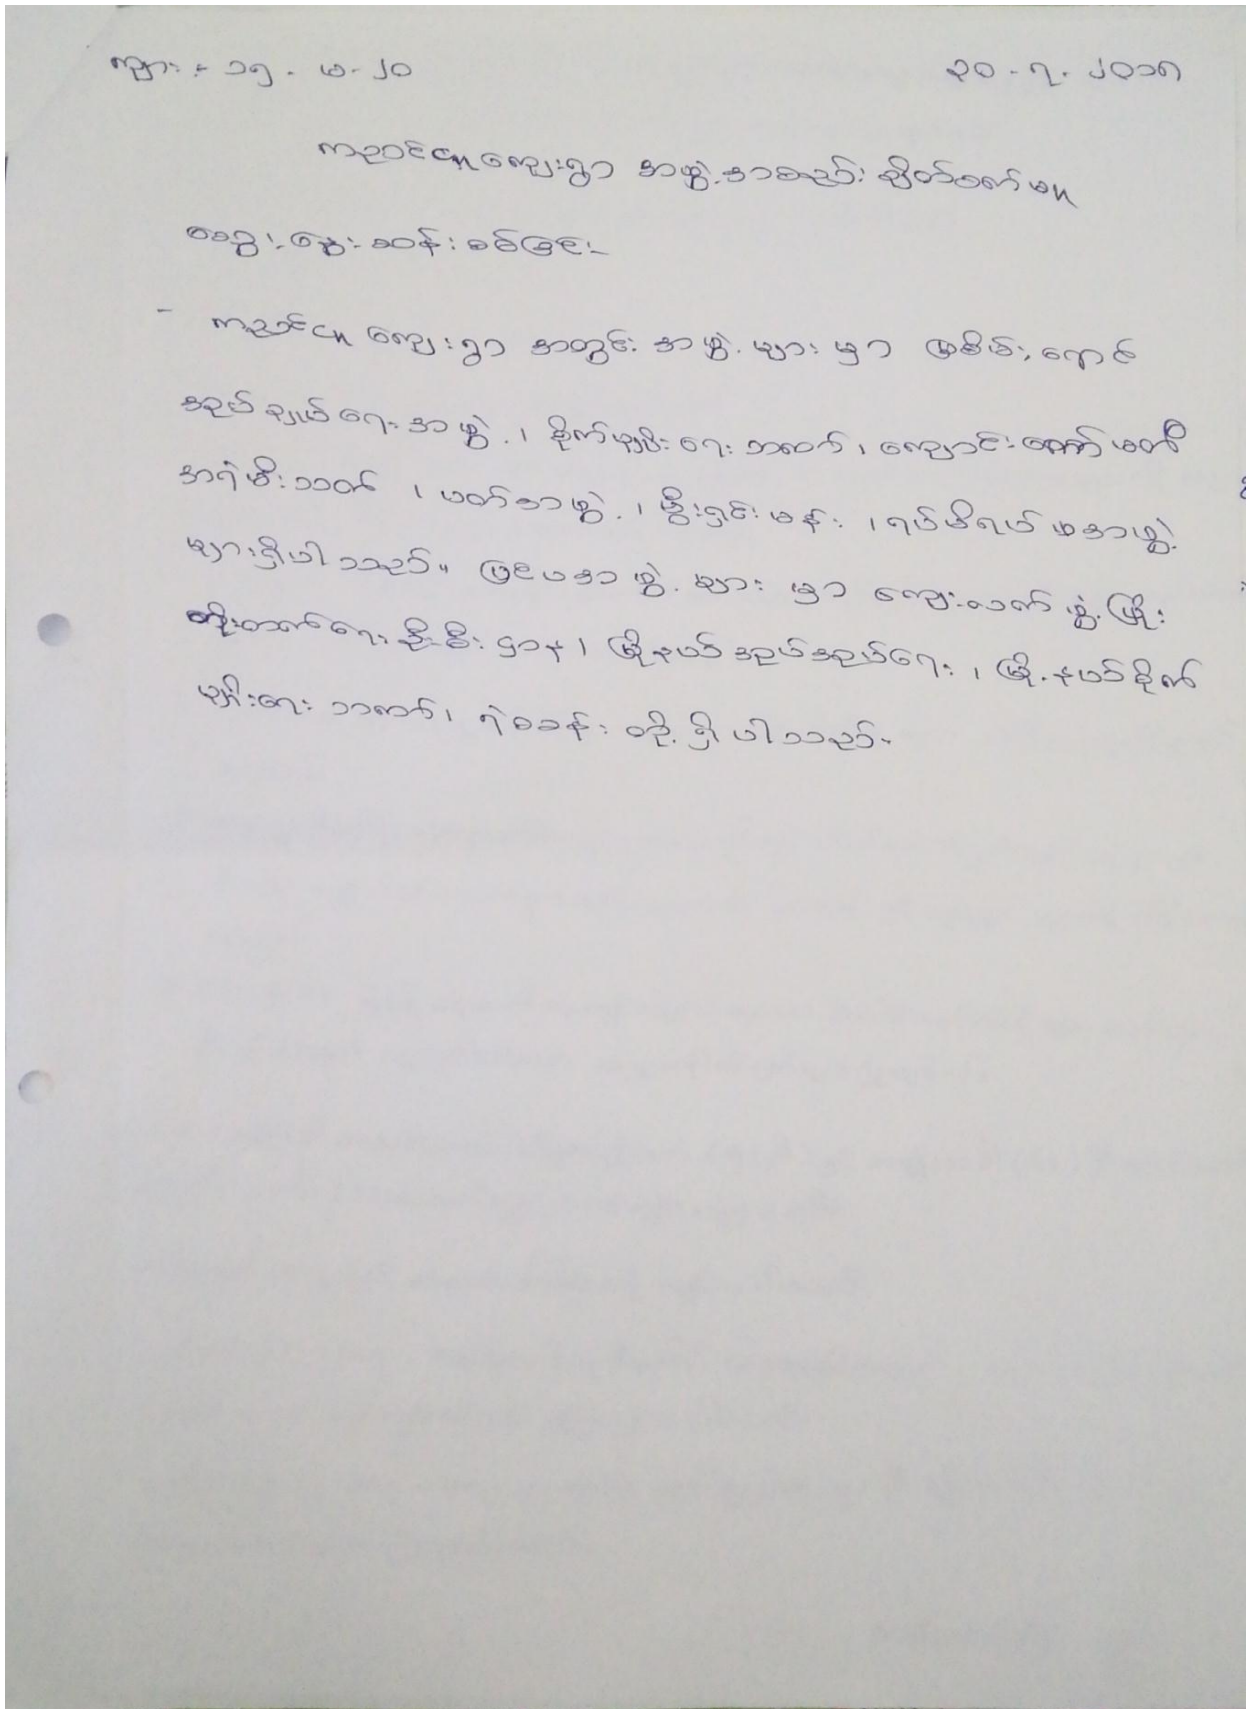 ကျား - ၁၅ . မ - ၂၀ ၃၀ - ၇ - ၂၀၁၈
ကညင်ငူကျေးရွာ အဖွဲ့အစည်း ချိတ်ဆက်မှု
ဆွေးနွေးဆန်းစစ်ခြင်း
- ကညင်ငူ ကျေးရွာ အတွင်း အဖွဲ့ များ မှာ ဖြစ်
အုပ်ချုပ်ရေးအဖွဲ့ ၊ စိုက်ပျိုးရေး ၊ ကျောင်းကော်မတီ
အရံမီးသတ် ၊ အဖွဲ့ ၊ ၊ ရပ်မိရပ်ဖအဖွဲ့
များရှိပါသည်။ ပြင်ပအဖွဲ့ များ မှာ ကျေးလက် ဖွံ့ဖြိုး
တိုးတက်ရေး ဦးစီး ဌာန ၊ မြို့နယ်အုပ်ချုပ်ရေး ၊ မြို့နယ်စိုက်
ပျိုးရေး ၊ ရဲစခန်း တို့ ရှိ ပါ သည်။